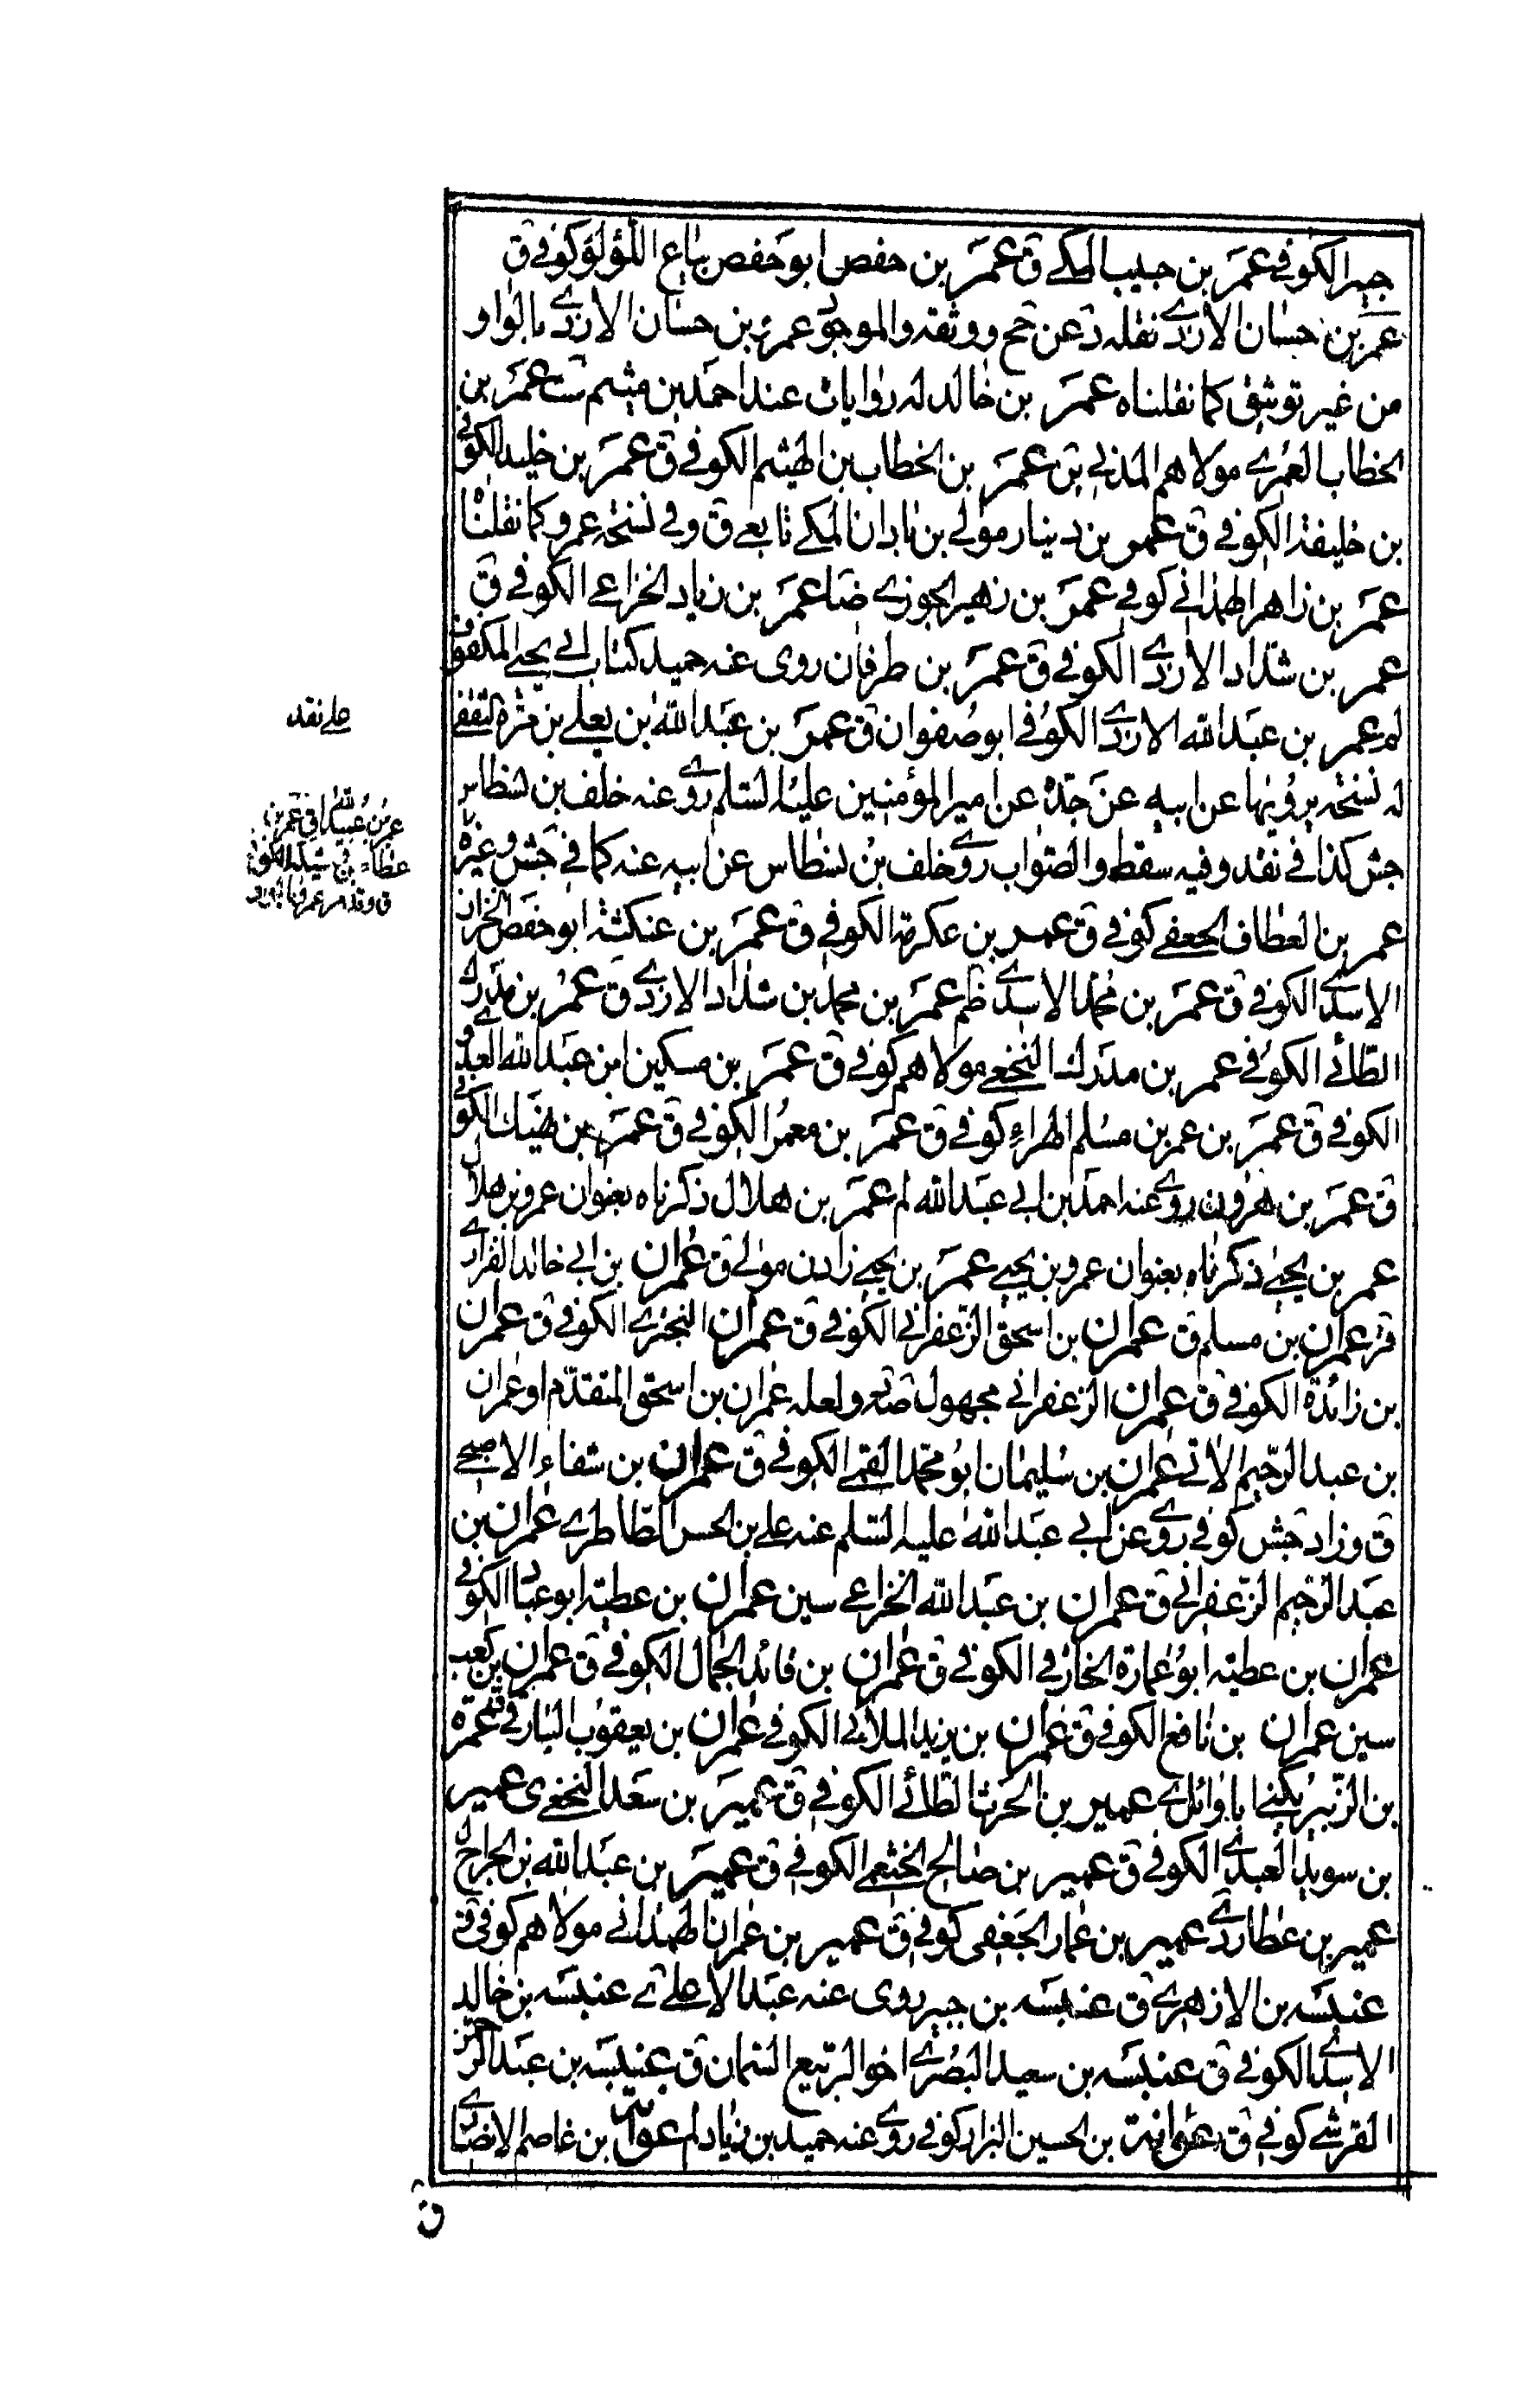 جبير الكوفي عمر بن حبيب المكي ق عمر بن حفص ابو حفص بياع اللؤلؤ كوفي ق
عمر بن حسان الازدي نقله د عن جح ووثقه والموجود عمرو بن حسان الازدي بالواو
من غير توثيق كما نقلناه عمر بن خالد له روايات عند احمد بن ميثم ست عمر بن
الخطاب العمري مولاهم المدني ين عمر بن الخطاب بن الهيثم الكوفي ق عمر بن خليد الكوفي
بن خليفة الكوفي ق عمر بن دينار مولى بن بادان المكي تابعي ق وفي نسخة عمرو كما نقلناه
عمر بن زاهر الهمداني كوفي عمر بن زهير الجوزي ضا عمر بن زياد الخزاعي الكوفي ق
عمر بن شداد الازدي الكوفي ق عمر بن طرفان روى عنه حميد كتاب ابي يحيى المكفوف
لم عمر بن عبد الله الازدي الكوفي ابو صفوان ق عمر بن عبد الله بن يعلى بن مرة الثقفي
له نسخة يرويها عن ابيه عن جده عن امير المؤمنين عليه السلم روى عنه خلف بن بسطاس
جش كذا في نقد وفيه سقط والصواب روى خلف بن بسطاس عن ابيه عنه كما في جش وغيره
عمر بن العطاف الجعفي كوفي ق عمر بن عكرمة الكوفي ق عمر بن عنكثة ابو حفص الخزاز
الاسدي الكوفي ق عمر بن محمد الاسدي ظم عمر بن محمد بن شداد الازدي ق عمر بن مدرك
الطائي الكوفي عمر بن مدرك النخعي مولاهم كوفي ق عمر بن مسكين ابن عبد الله العبدي
الكوفي ق عمر بن عمر بن مسلم الهراء كوفي ق عمر بن معمر الكوفي ق عمر بن هنيك الكوفي
ق عمر بن هرون روى عنه احمد بن ابي عبد الله لم عمر بن هلال ذكرناه بعنوان عمرو بن هلال
عمر بن يحيى ذكرناه بعنوان عمرو بن يحيى عمر بن يحيى زادن مولى ق عمران بن ابي خالد الفزاري
قر عمران بن مسلم ق عمران بن اسحق الزعفراني الكوفي ق عمران البجري الكوفي ق عمران
بن زائدة الكوفي ق عمران الزعفراني مجهول صه ولعله عمران بن اسحق المتقدم او عمران
بن عبد الرحيم الاتي عمران بن سليمان ابو محمد القمي الكوفي ق عمران بن شفاء الاصبحي
ق وزاد جش كوفي روى عن ابي عبد الله عليه السلم عنه علي بن الحسن الطاطري عمران بن
عبد الرحيم الزعفراني ق عمران بن عبد الله الخزاعي سين عمران بن عطية ابو عباد الكوفي
عمران بن عطية ابو عمارة الخازفي الكوفي ق عمران بن فائد الجمال الكوفي ق عمران بن كعب
سين عمران بن نافع الكوفي ق عمران بن يزيد الملائي الكوفي عمران بن يعقوب البارقي عمرة
بن الزبير يكنى ابا وائل ي عمير بن الحرث الطائي الكوفي ق عمير بن سعد النخعي ى عمير
بن سويد العبدي الكوفي ق عمير بن صالح الخثعمي الكوفي ق عمير بن عبد الله بن الجراح
عمير بن عطارد ي عمير بن عمار الجعفى كوفي ق عمير بن عمران الهمداني مولاهم كوفي ق
عنبسه بن الازهري ق عنبسه بن جبير روى عنه عبد الاعلى ي عنبسه بن خالد
الاسدي الكوفي ق عنبسه بن سعيد البصري اخو الربيع السمان ق عنبسه بن عبد الرحمن
القرشي كوفي ق عوانة بن الحسين البزار كوفي روى عنه حميد بن زياد لم عوانة بن عاصم الانصاري
ق
على نقد
عمر بن عبيد الله في عمر بن
عطاء بن الكوفي
ق وقد مر عمر